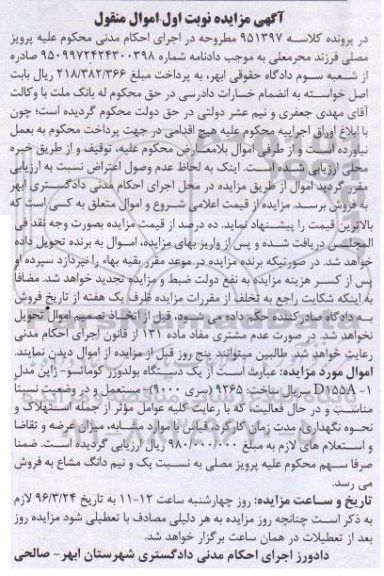 آگهی مزایده نوبت اول اموال منقول
در پرونده کلاسه ۹۵۱۳۹۷ مطروحه در اجرای احکام مدنی محکوم علیه پرویز
مصلی فرزند محرمعلی به موجب دادنامه شماره ۹۵۰۹۹۷۲۴۲۴۳۰۰۳۹۸ صادره
از شعبه سوم دادگاه حقوقی ابهر، به پرداخت مبلغ ۲۱۸/۳۸۲/۳۶۶ ریال بابت
اصل خواسته به انضمام خسارات دادرسی در حق محکوم له بانک ملت با وکالت
آقای مهدی جعفری و نیم عشر دولتی در حق دولت محکوم گردیده است؛ چون
با ابلاغ اوراق اجراییه محکوم علیه هیچ اقدامی در جهت پرداخت محکوم به بعمل
نیاورده است و از طرفی اموال بلامعارض محکوم علیه، توقیف و از طریق خبره
محلی ارزیابی شده است. اینک به لحاظ عدم وصول اعتراض نسبت به ارزیابی
مقرر گردید اموال از طریق مزایده در محل اجرای احکام مدنی دادگستری ابهر
به فروش برسد. مزایده از قیمت اعلامی شروع و اموال متعلق به کسی است که
بالاترین قیمت را پیشنهاد نماید. ده درصد از قیمت مزایده بصورت وجه نقد فی
المجلس دریافت شده و پس از واریز بهای مزایده، اموال به برنده تحویل داده
خواهد شد. در صورتیکه برنده مزایده در موعد مقرر بقیه بهاء را نپردازد سپرده او
پس از کسر هزینه مزایده به نفع دولت ضبط و مزایده تجدید خواهد شد. مضافاً
به اینکه شکایت راجع به تخلف از مقررات مزایده ظرف یک هفته از تاریخ فروش
به دادگاه صادر کننده حکم داده می شود، قبل از اتخاذ تصمیم اموال تحویل
نخواهد شد. در صورت عدم مشتری مفاد ماده ۱۳۱ از قانون اجرای احکام مدنی
رعایت خواهد شد. طالبین میتوانند پنج روز قبل از مزایده از اموال دیدن نمایند.
اموال مورد مزایده: عبارت است از یک دستگاه بولدوزر کوماتسو- ژاپن مدل
D155A -۱ سریال ساخت: ۹۲۶۵ (سری ۹۰۰۰)- مستعمل و در وضعیت نسبتاً
مناسب و در حال فعالیت، که با رعایت کلیه عوامل مؤثر از جمله استهلاک و
نحوه نگهداری، مدت زمان کارکرد، قیاس با موارد مشابه، میزان عرضه و تقاضا
و استعلام های لازم به مبلغ ۹۸۰/۰۰۰/۰۰۰ ریال ارزیابی گردیده است. ضمنا
صرفا سهم محکوم علیه پرویز مصلی به نسبت یک و نیم دانگ مشاع به فروش
می رسد.
تاریخ و ساعت مزایده: روز چهارشنبه ساعت ۱۲-۱۱ به تاریخ ۹۶/۳/۲۴ لازم
به ذکر است چنانچه روز مزایده به هر دلیلی مصادف با تعطیلی شود مزایده روز
بعد از تعطیلات در همان ساعت برگزار خواهد شد.
دادورز اجرای احکام مدنی دادگستری شهرستان ابهر- صالحی